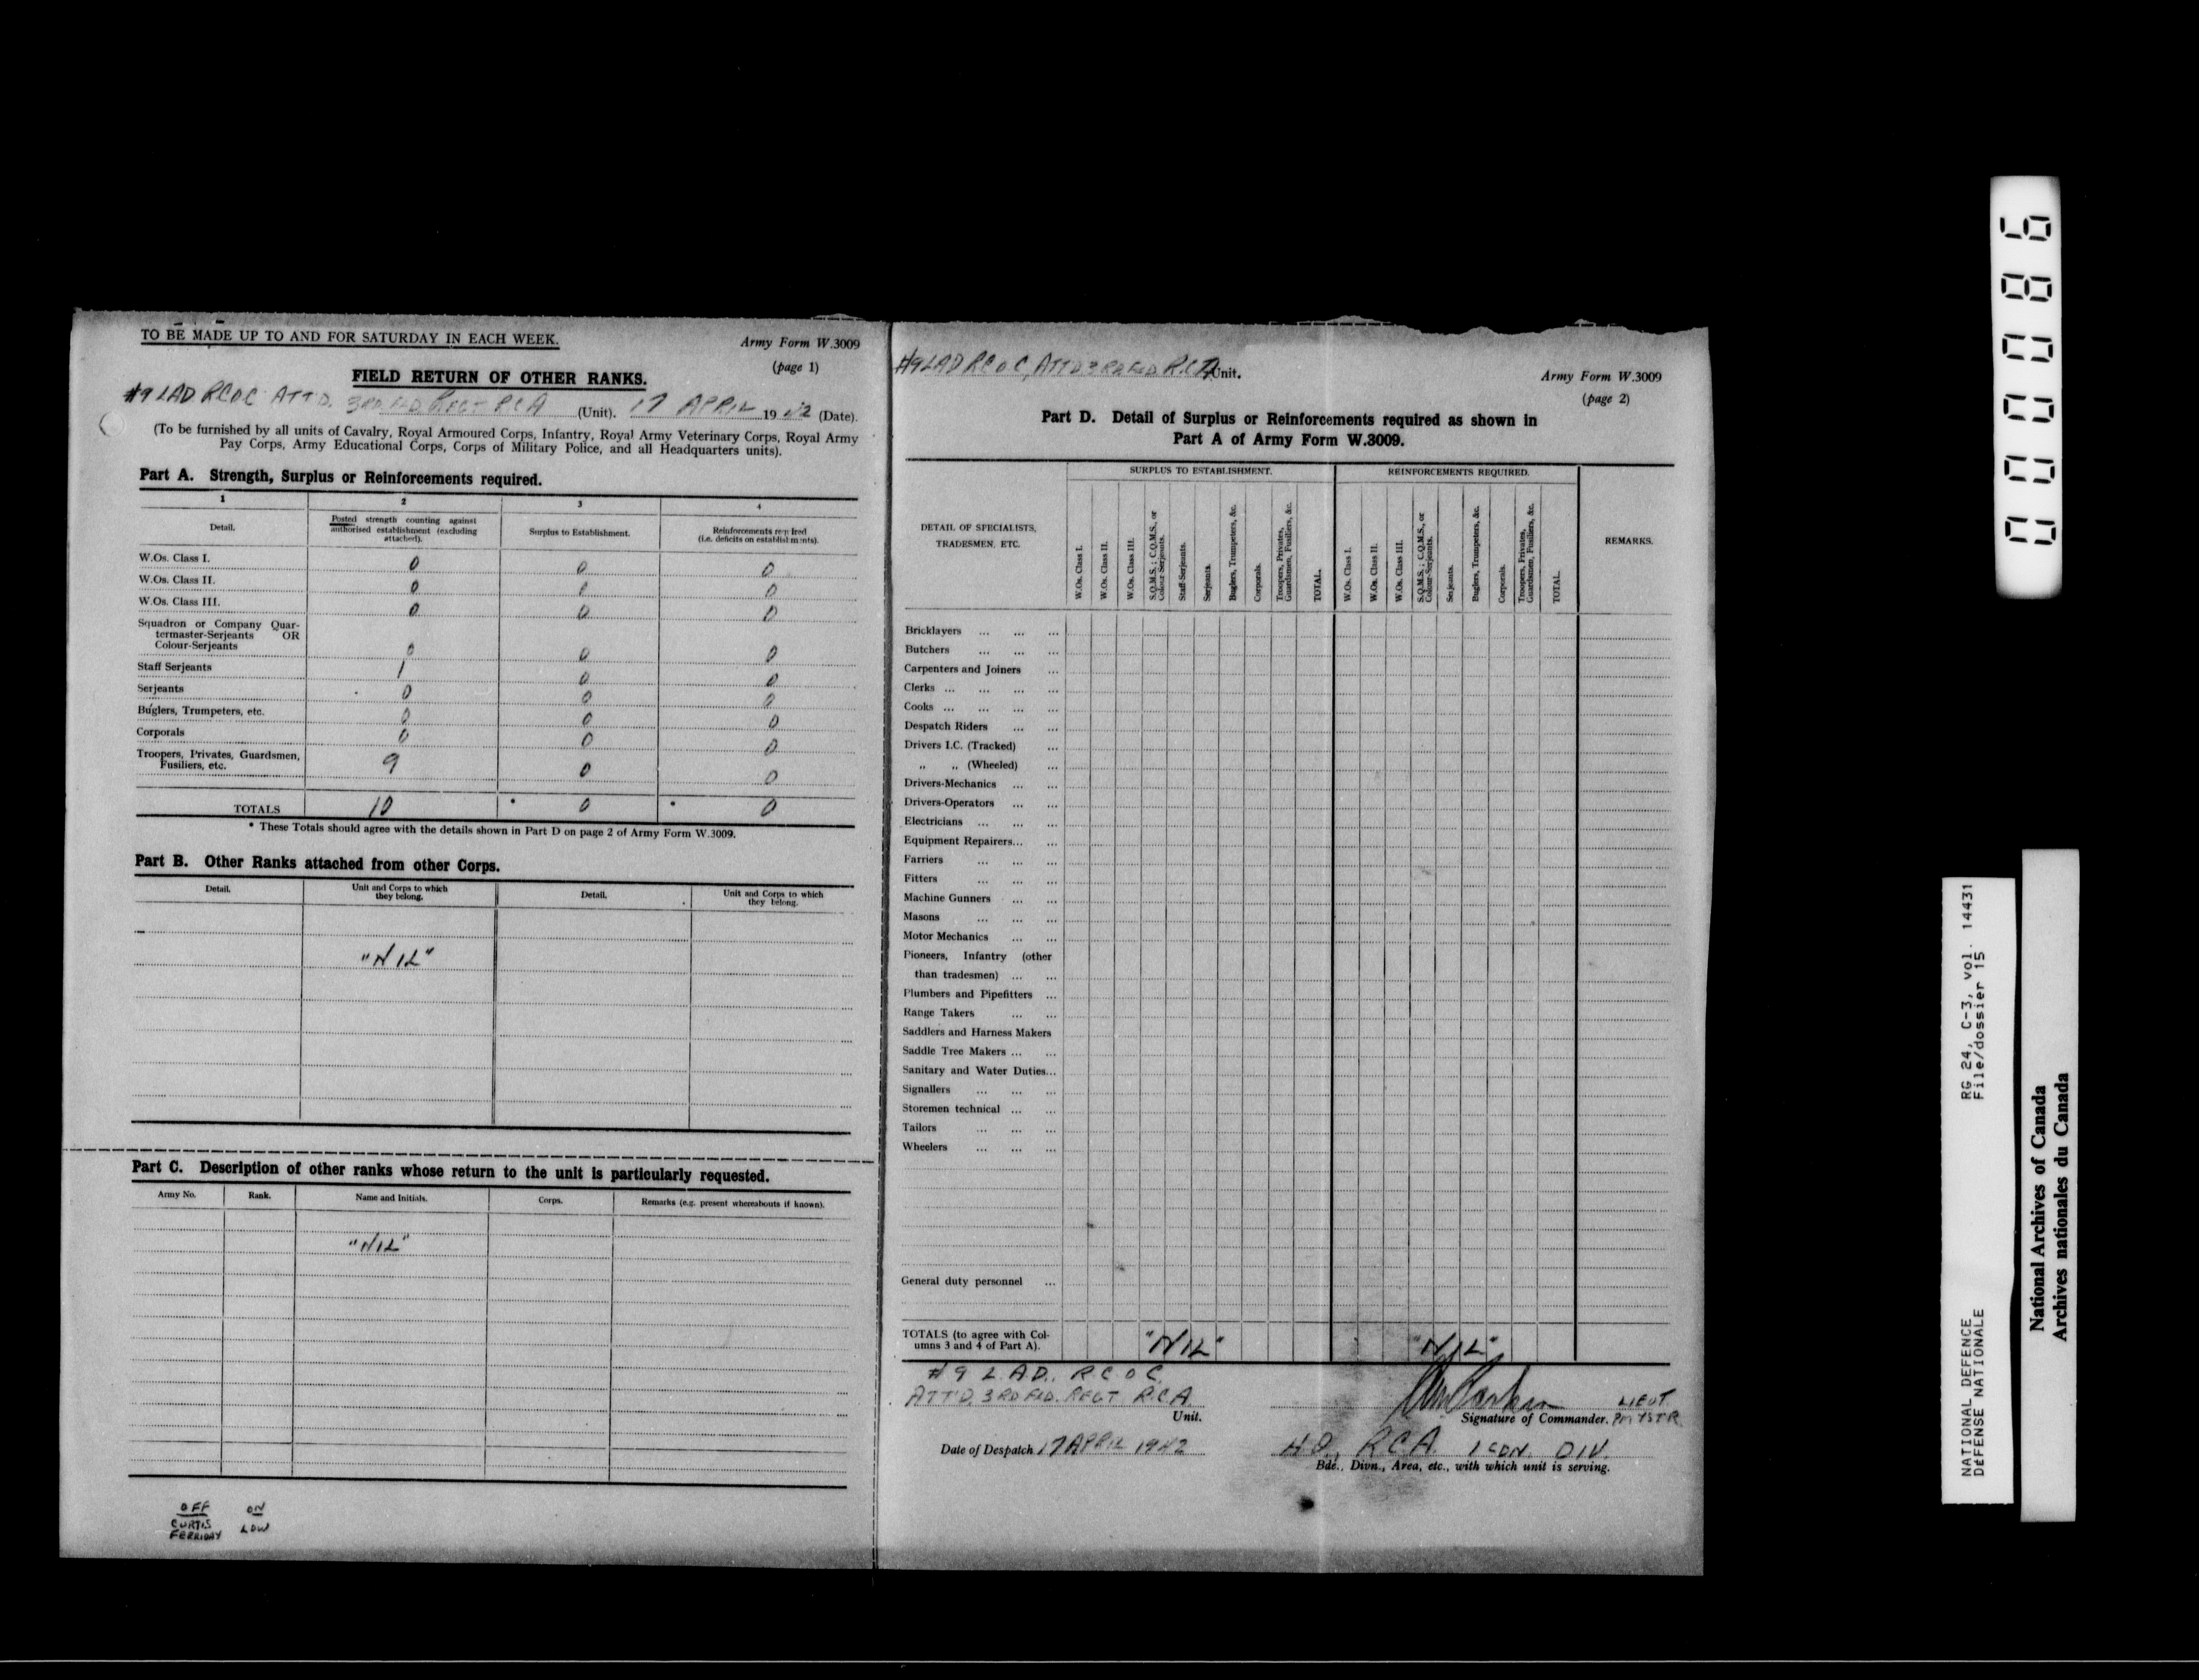 TO BE MADE UP TO AND FOR SATURDAY IN EACH WEEK.
Army Form W.3009
(page 1)
FIELD RETURN OF OTHER RANKS.
#9 LAD RCOC ATT'D. 3RD FLD REGT RCA (Unit). 17 APRIL 1942 (Date).
(To be furnished by all units of Cavalry, Royal Armoured Corps, Infantry, Royal Army Veterinary Corps, Royal Army
Pay Corps, Army Educational Corps, Corps of Military Police, and all Headquarters units).
Part A. Strength, Surplus or Reinforcements required.
1 2 3 4
Detail. Posted strength counting against authorised establishment (excluding attached). Surplus to Establishment. Reinforcements required (i.e. deficits on establishments).
W.Os. Class I. 0 0 0
W.Os. Class II. 0 0 0
W.Os. Class III. 0 0 0
Squadron or Company Quar-
termaster-Serjeants OR
Colour-Serjeants 0 0 0
Staff Serjeants 1 0 0
Serjeants 0 0 0
Buglers, Trumpeters, etc. 0 0 0
Corporals 0 0 0
Troopers, Privates, Guardsmen,
Fusiliers, etc. 9 0 0
TOTALS 10 * 0 * 0
* These Totals should agree with the details shown in Part D on page 2 of Army Form W.3009.
Part B. Other Ranks attached from other Corps.
Detail. Unit and Corps to which they belong. Detail. Unit and Corps to which they belong.
"NIL"
Part C. Description of other ranks whose return to the unit is particularly requested.
Army No. Rank. Name and Initials. Corps. Remarks (e.g. present whereabouts if known).
"NIL"
OFF ON
CURTIS LOW
FERRIDAY
#9 LAD RCOC, ATT'D 3RD FLD R.C.A Unit.
Army Form W.3009
(page 2)
Part D. Detail of Surplus or Reinforcements required as shown in
Part A of Army Form W.3009.
DETAIL OF SPECIALISTS, TRADESMEN, ETC.
SURPLUS TO ESTABLISHMENT.
REINFORCEMENTS REQUIRED.
REMARKS.
W.Os. Class I.
W.Os. Class II.
W.Os. Class III.
S.Q.M.S.; C.Q.M.S., or Colour-Serjeants.
Staff-Serjeants.
Serjeants.
Buglers, Trumpeters, &c.
Corporals.
Troopers, Privates, Guardsmen, Fusiliers, &c.
TOTAL.
W.Os. Class I.
W.Os. Class II.
W.Os. Class III.
S.Q.M.S.; C.Q.M.S., or Colour-Serjeants.
Serjeants.
Buglers, Trumpeters, &c.
Corporals.
Troopers, Privates, Guardsmen, Fusiliers, &c.
TOTAL.
Bricklayers ... ... ...
Butchers ... ... ...
Carpenters and Joiners ...
Clerks ... ... ... ...
Cooks ... ... ... ...
Despatch Riders ... ...
Drivers I.C. (Tracked) ...
„ „ (Wheeled) ...
Drivers-Mechanics ... ...
Drivers-Operators ... ...
Electricians ... ... ...
Equipment Repairers... ...
Farriers ... ... ...
Fitters ... ... ...
Machine Gunners ... ...
Masons ... ... ...
Motor Mechanics ... ...
Pioneers, Infantry (other
than tradesmen) ... ...
Plumbers and Pipefitters ...
Range Takers ... ...
Saddlers and Harness Makers
Saddle Tree Makers ... ...
Sanitary and Water Duties...
Signallers ... ... ...
Storemen technical ... ...
Tailors ... ... ...
Wheelers ... ... ...
General duty personnel ...
TOTALS (to agree with Col-
umns 3 and 4 of Part A). "NIL" "NIL"
#9 L.A.D., R C O C.
ATT'D. 3RD FLD. REGT R.C.A.
Unit.
LIEUT
Signature of Commander. PMYSTR
Date of Despatch 17 APRIL 1942
H.Q., R.C.A. 1 CDN. DIV.
Bde., Divn., Area, etc., with which unit is serving.
000086
NATIONAL DEFENCE RG 24, C-3, vol. 14431
DÉFENSE NATIONALE File/dossier 15
National Archives of Canada
Archives nationales du Canada